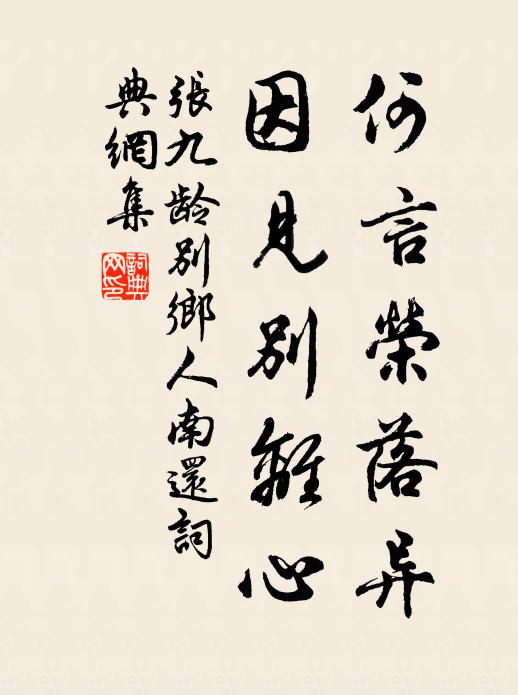 何言榮落异
因見別離心
張九齡別鄉人南還詞
典網集
詞典网印